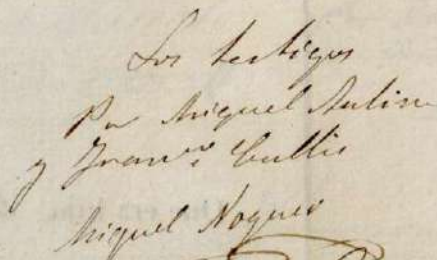 Los testigos
Por Miguel Aulin
y Franco Cullis
Miguel Noguer